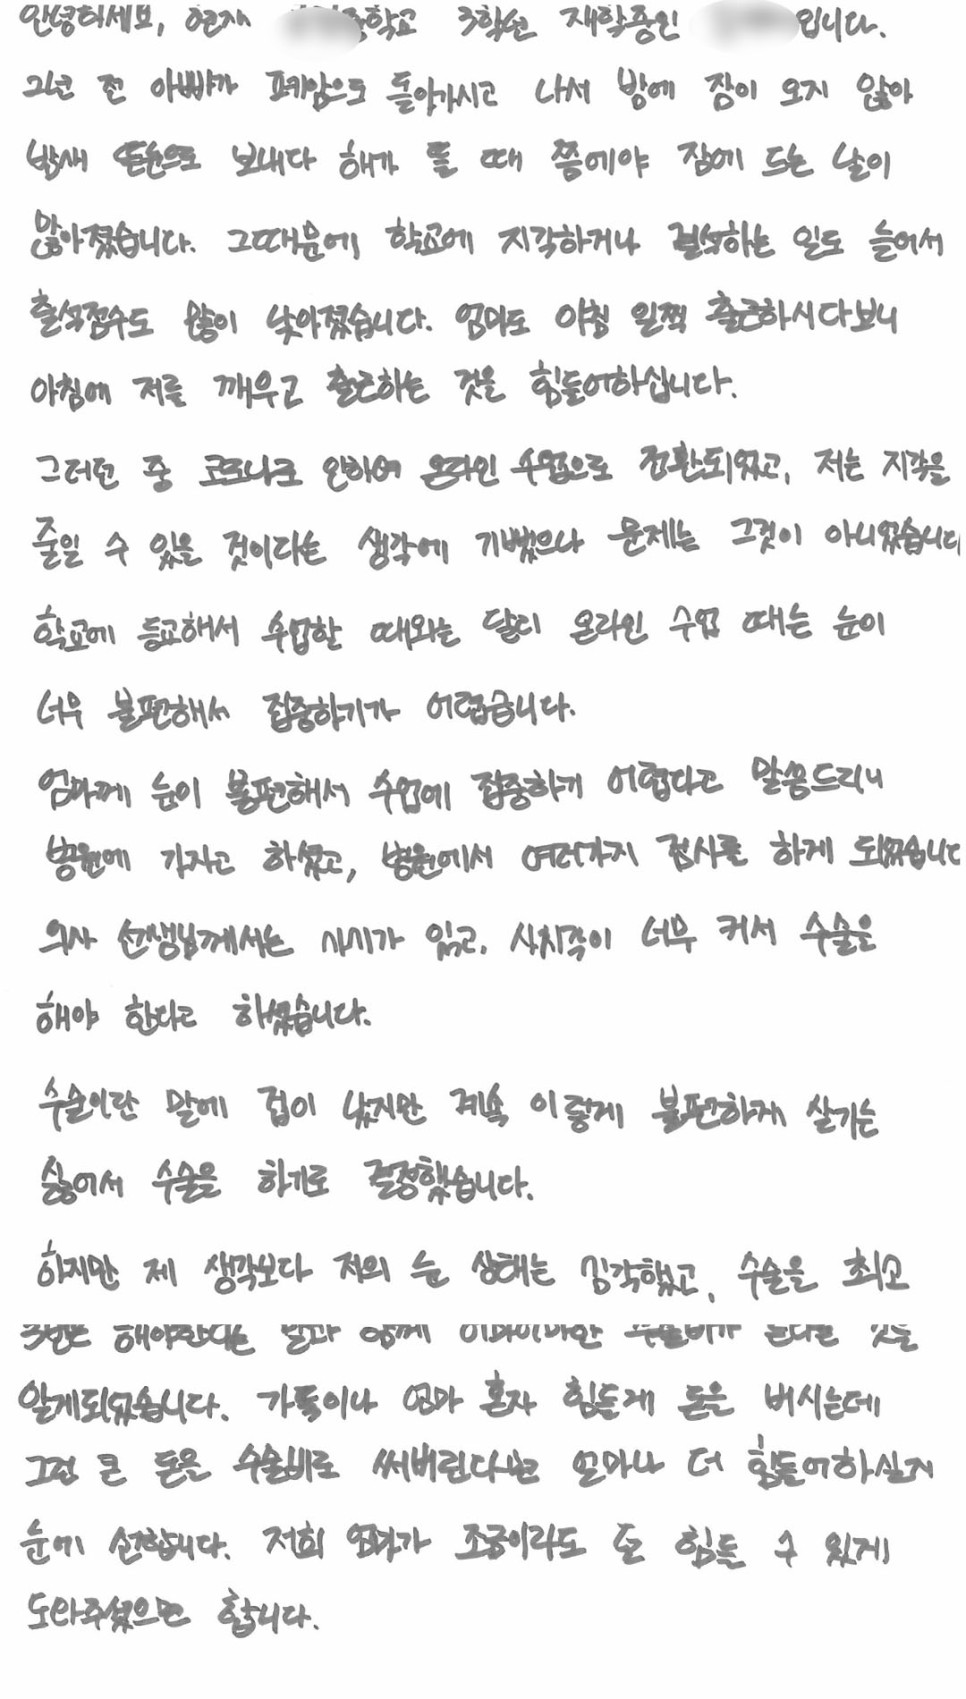 안녕하세요, 현재 중학교 3학년 재학중인 입니다.
그년 전 아빠가 폐암으로 돌아가시고 나서 밤에 잠이 오지 않아
밤새 뜬눈으로 보내다 해가 뜰 때 쯤에야 잠에 드는 날이
많아졌습니다. 그때문에 학교에 지각하거나 결석하는 일도 늘어서
출석점수도 많이 낮아졌습니다. 엄마도 아침 일찍 출근하시다보니
아침에 저를 깨우고 출근하는 것을 힘들어하십니다.
그러던 중 코로나로 인하여 온라인 수업으로 전환되었고, 저는 지각을
줄일 수 있을 것이다는 생각에 기뻤으나 문제는 그것이 아니었습니다
학교에 등교해서 수업한 때와는 달리 온라인 수업 때는 눈이
너무 불편해서 집중하기가 어렵습니다.
엄마께 눈이 불편해서 수업에 집중하기 어렵다고 말씀드리니
병원에 가자고 하셨고, 병원에서 여러가지 검사를 하게 되었습니다
의사 선생님께서는 사시가 있고, 사시각이 너무 커서 수술을
해야 한다고 하셨습니다.
수술이란 말에 겁이 났지만 계속 이렇게 불편하게 살기는
싫어서 수술을 하기로 결정했습니다.
하지만 제 생각보다 저의 눈 상태는 심각했고, 수술을 최소
3번은 해야한다는 말과 함께 어마어마한 수술비가 든다는 것을
알게되었습니다. 가뜩이나 엄마 혼자 힘들게 돈을 버시는데
그런 큰 돈을 수술비로 써버린다면 얼마나 더 힘들어하실지
눈에 선합니다. 저희 엄마가 조금이라도 덜 힘들 수 있게
도와주셨으면 합니다.